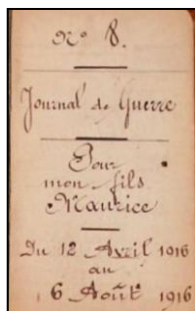 Nº 8.
Journal de Guerre
Pour
mon fils
Maurice
Du 12 Avril 1916
au
6 Août 1916